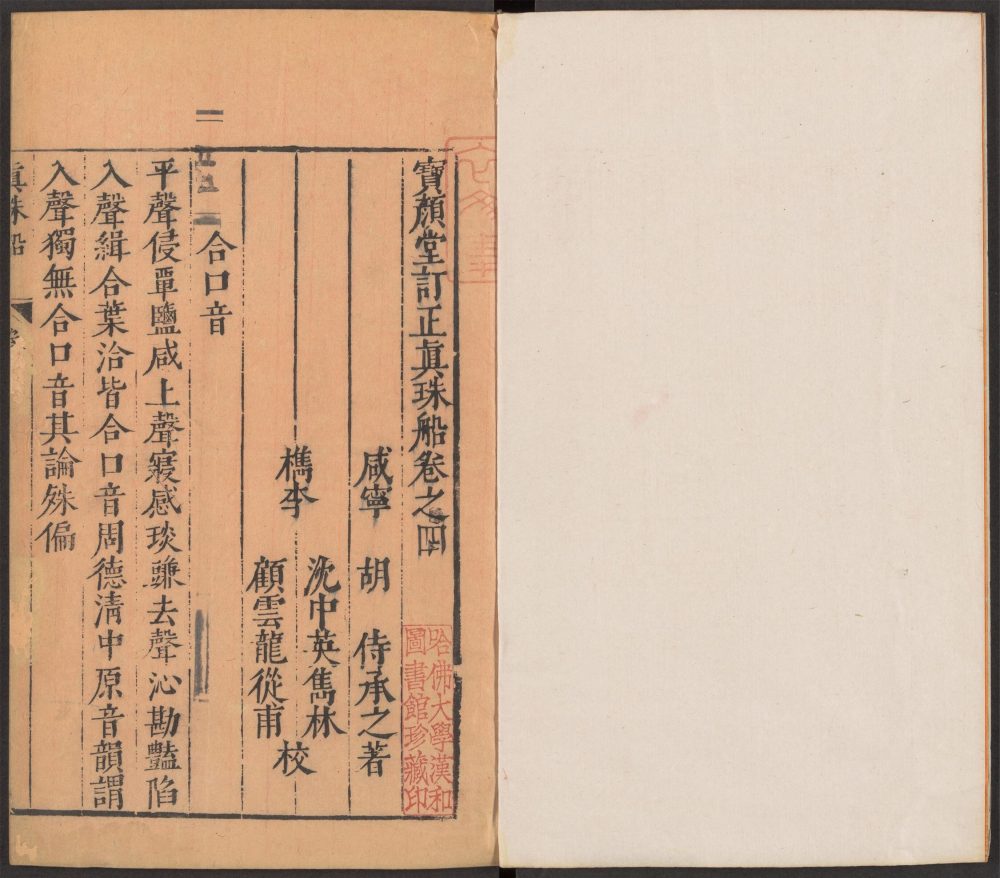 寶顏堂訂正眞珠船卷之四
咸寧　胡　侍承之著
檇李　沈中英雋林
顧雲龍從甫　校
合口音
平聲侵覃鹽咸上聲寑感琰豏去聲沁勘豔陷
入聲緝合葉洽皆合口音周德淸中原音韻謂
入聲獨無合口音其論殊偏
眞珠船
哈佛大學漢和
圖書館珍藏印